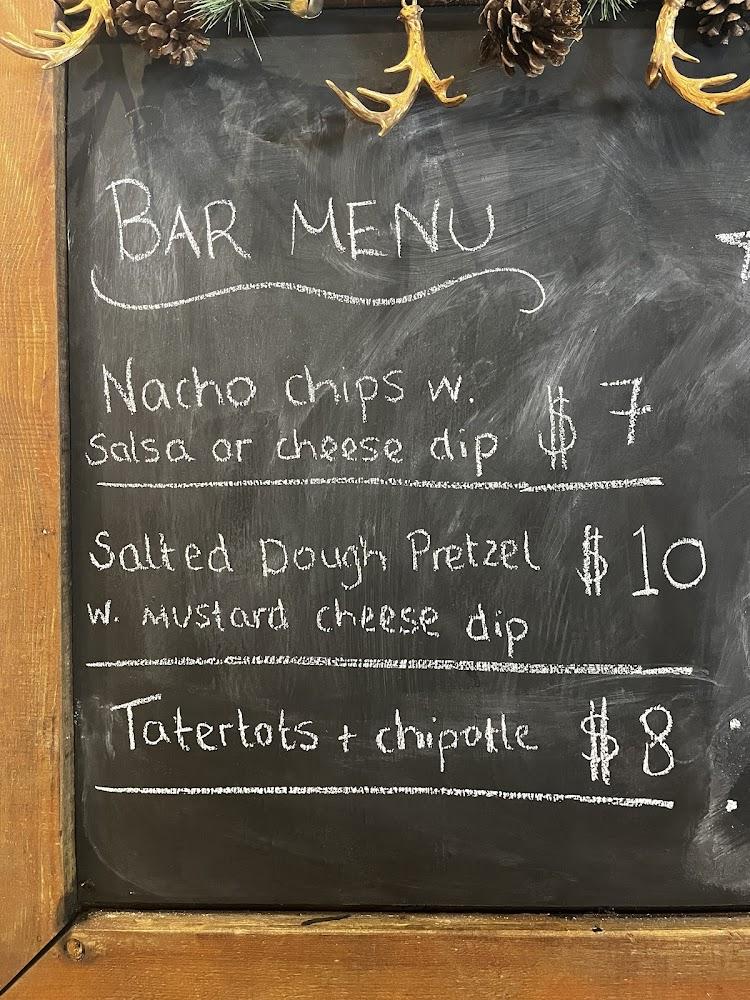 BAR MENU
Nacho chips w.
salsa or cheese dip $ 7
Salted Dough Pretzel $ 10
w. Mustard cheese dip
Tatertots + chipotle $ 8